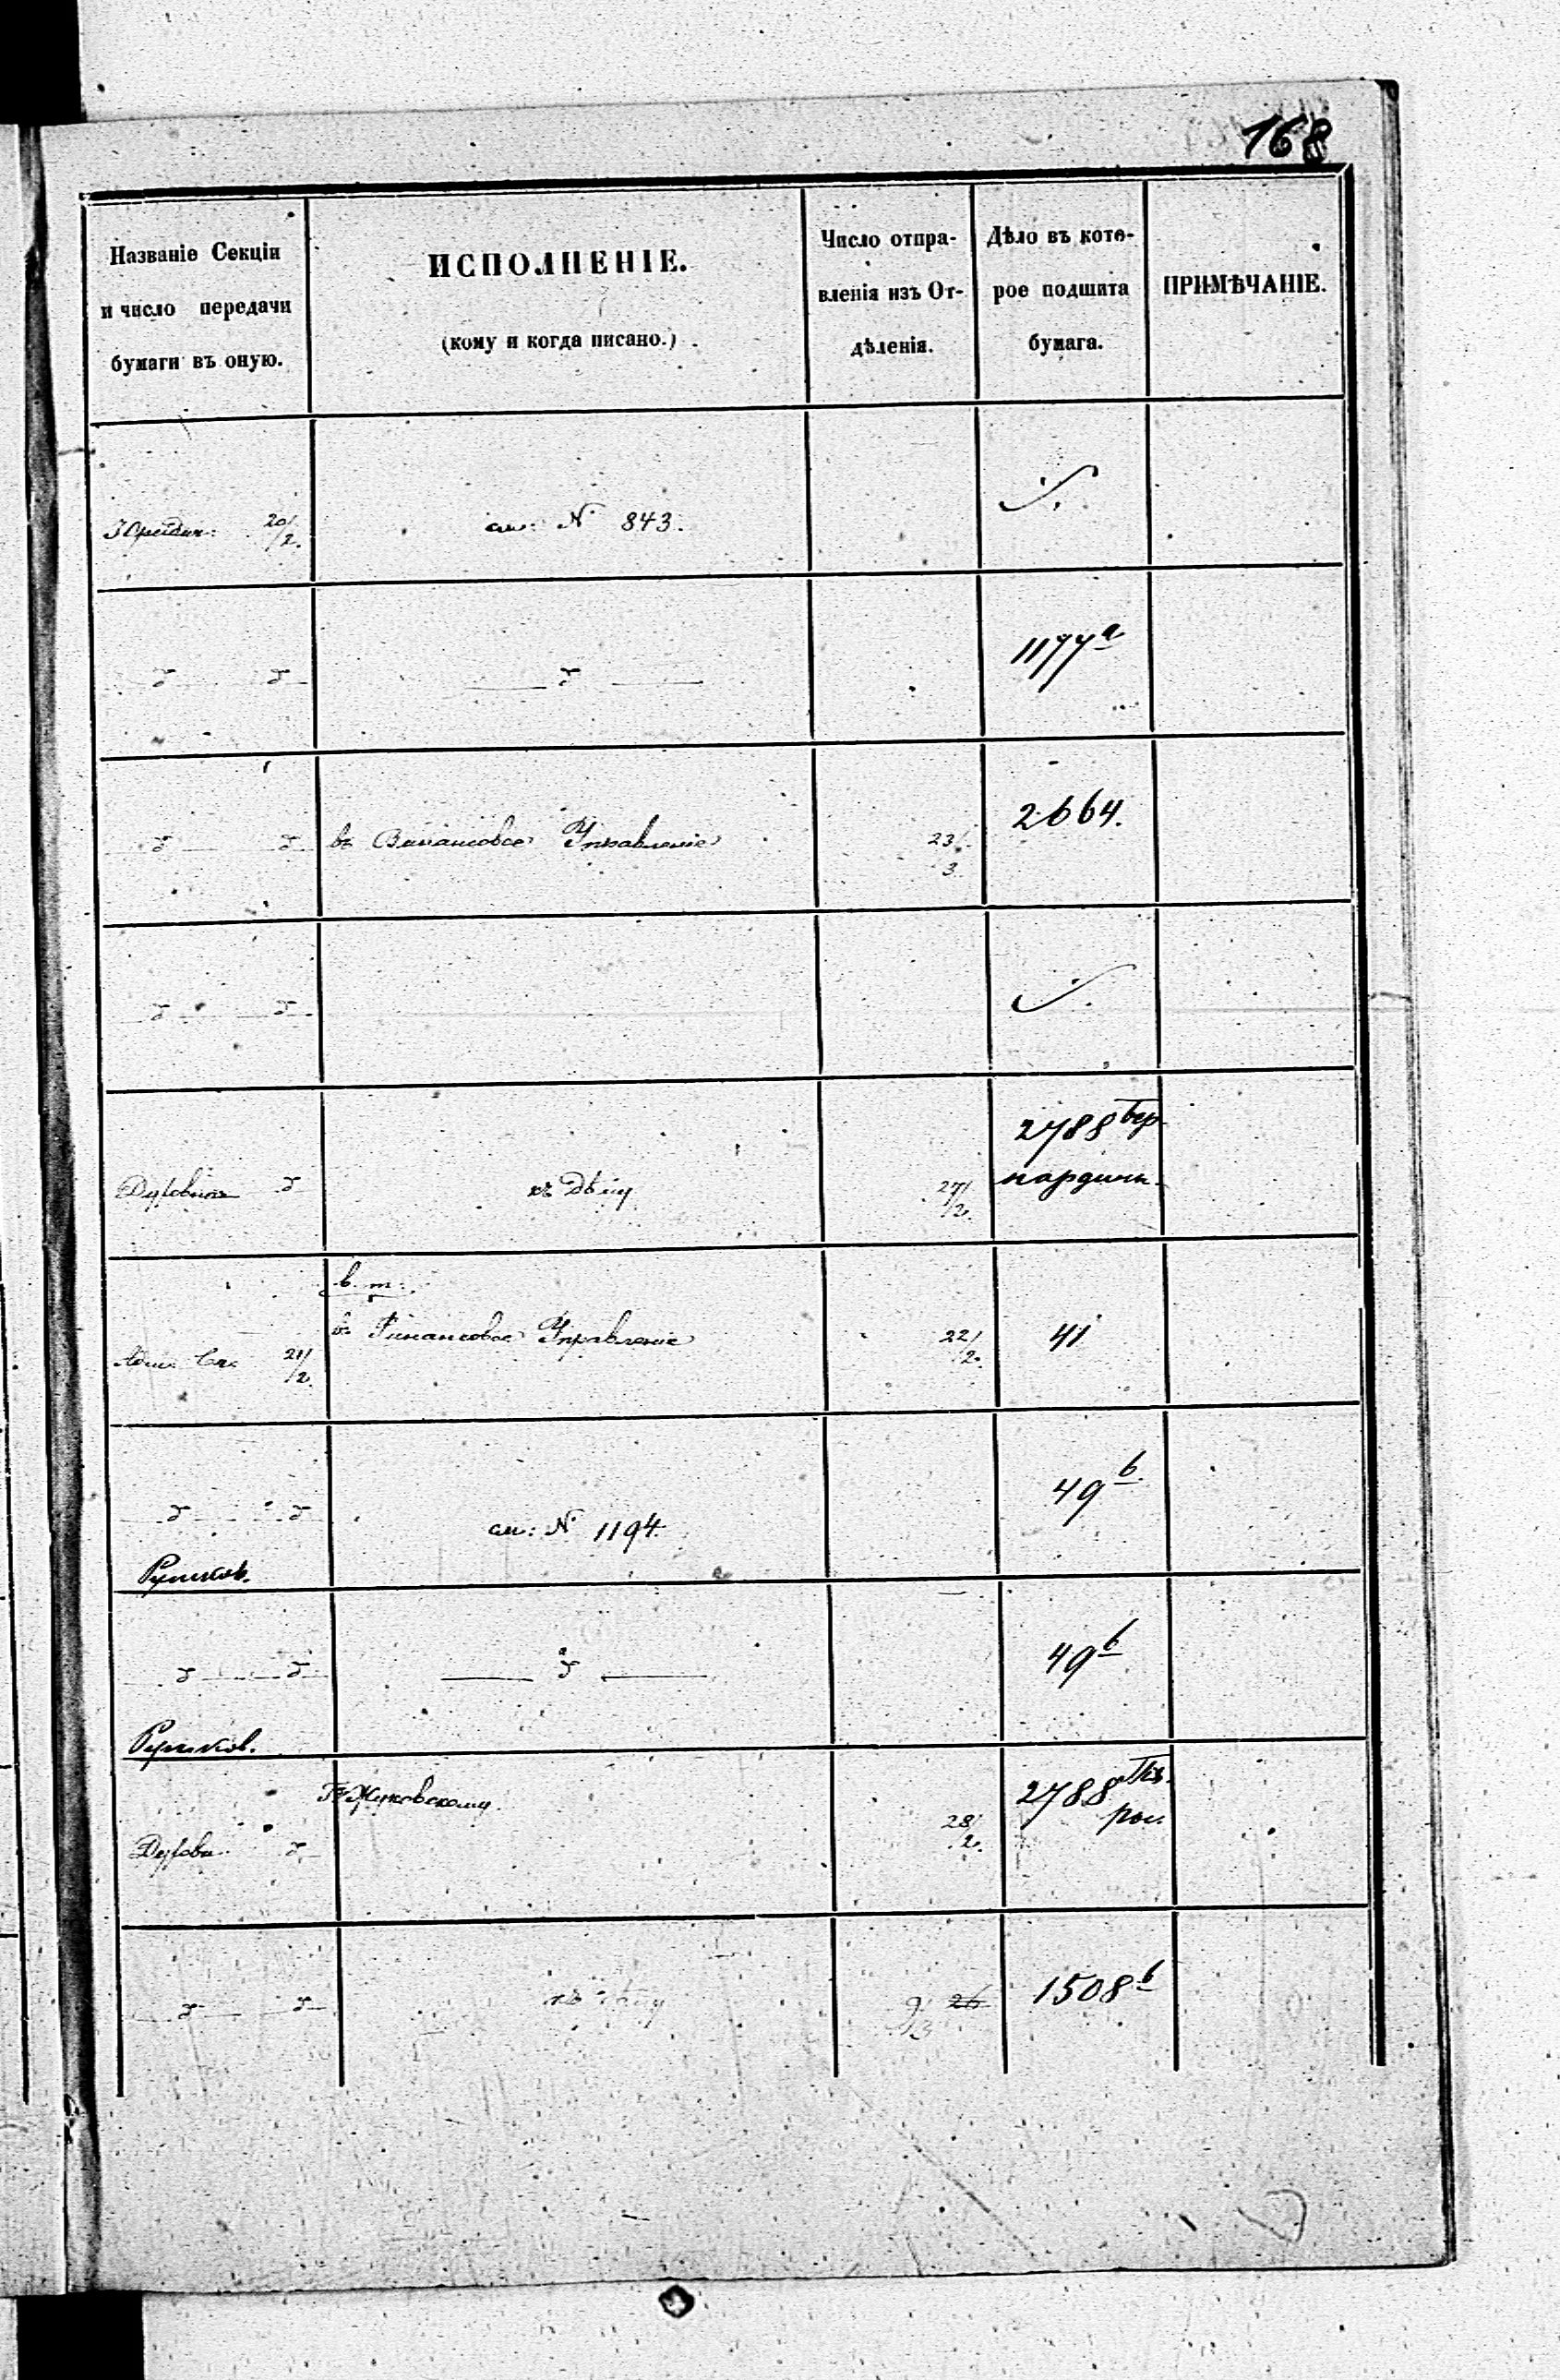 168
Названіе Секціи
и число передачи
бумаги въ оную.
ИСПОЛНЕНІЕ.
(кому и когда писано.)
Число отпра-
вленія изъ От-
дѣленія.
Дѣло въ кото-
рое подшита
бумага.
ПРИМѢЧАНІЕ.
Юридич: 20/2. см: № 843.
1177 а
2664.
въ Финансовое Управленіе 23/3
2788 бер
Духовная къ дѣлу 27/2 нардинъ.
в. т.
въ Финансовое Управленіе 22/2. 41
Адм. Сек 21/2.
49 б
см: № 1194.
49 б
Г. Жуковскому. 2788
Духовн. 28/2.
къ дѣлу 9/3 26 1508 б